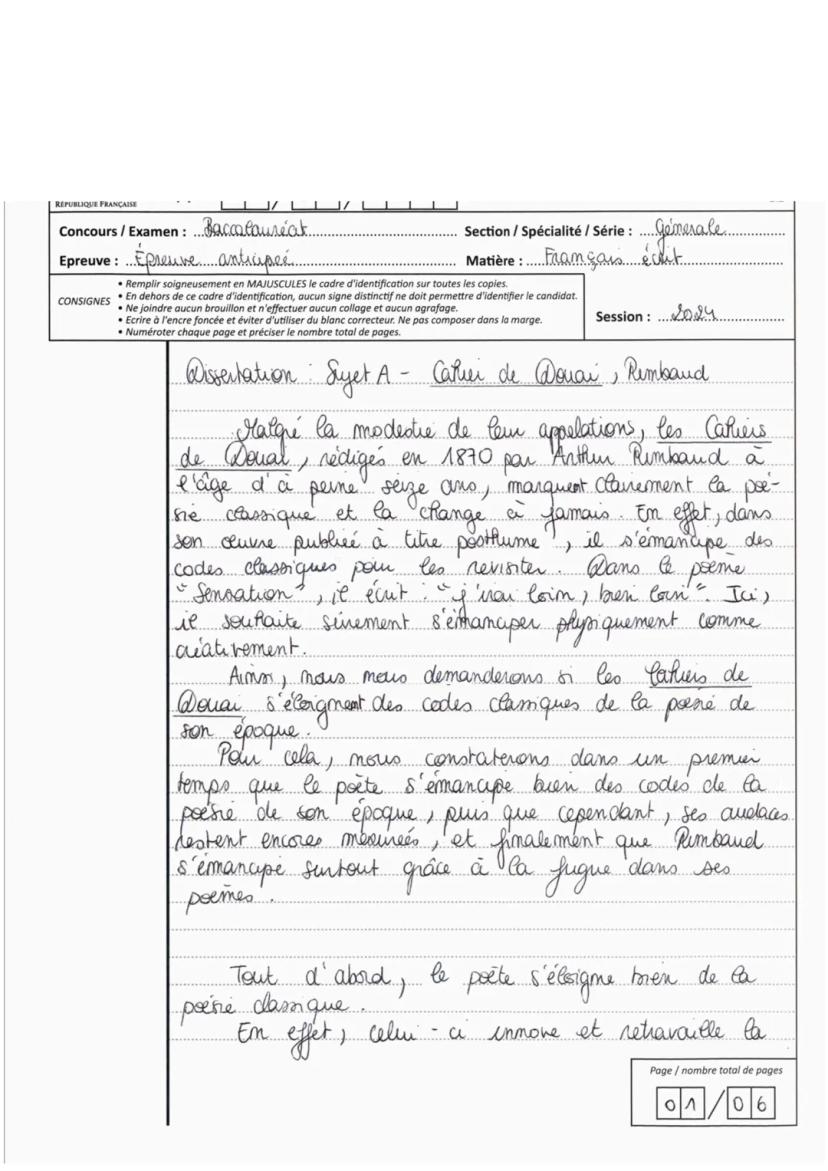 RÉPUBLIQUE FRANÇAISE
Concours / Examen : Baccalauréat Section / Spécialité / Série : Génerale
Epreuve : Épreuve anticipeé Matière : Français écrit
CONSIGNES
• Remplir soigneusement en MAJUSCULES le cadre d'identification sur toutes les copies.
• En dehors de ce cadre d'identification, aucun signe distinctif ne doit permettre d'identifier le candidat.
• Ne joindre aucun brouillon et n'effectuer aucun collage et aucun agrafage.
• Ecrire à l'encre foncée et éviter d'utiliser du blanc correcteur. Ne pas composer dans la marge.
• Numéroter chaque page et préciser le nombre total de pages.
Session : 2024
Dissertation : Sujet A - Cahier de Douai, Rimbaud
Malgré la modestie de leur appelations, les Cahiers
de Douai, rédigés en 1870 par Arthur Rimbaud à
l'âge d'à peine seize ans, marquent clairement la poé-
sie classique et la change à jamais. En effet, dans
son œuvre publiée à titre posthume, il s'émancipe des
codes classiques pour les revisiter. Dans le poème
"Sensation", il écrit : "j'irai loin, bien loin". Ici,
il souhaite sûrement s'émanciper physiquement comme
créativement.
Ainsi, nous nous demanderons si les Cahiers de
Douai s'éloignent des codes classiques de la poésie de
son époque.
Pour cela, nous constaterons dans un premier
temps que le poète s'émancipe bien des codes de la
poésie de son époque, puis que cependant, ses audaces
restent encores mesurées, et finalement que Rimbaud
s'émancipe surtout grâce à la fugue dans ses
poèmes.
Tout d'abord, le poète s'éloigne bien de la
poésie classique.
En effet, celui-ci innove et retravaille la
Page / nombre total de pages
01/06